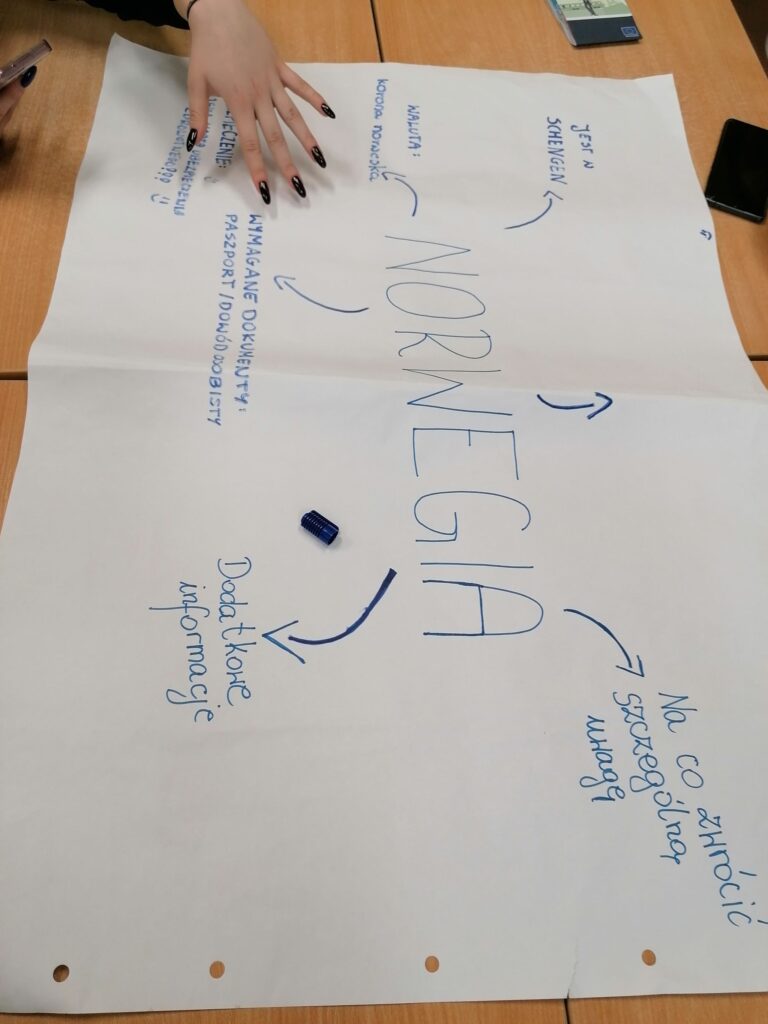 JEST W
SCHENGEN
WALUTA:
korona norweska
NORWEGIA
Na co zwrócić
szczególną
uwagę
WYMAGANE DOKUMENTY:
PASZPORT / DOWÓD OSOBISTY
Dodatkowe
informacje